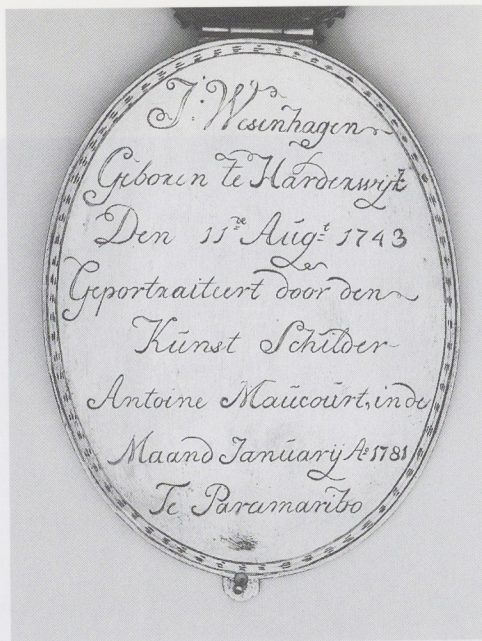 J: Wesenhagen
Geboren te Harderwijk
Den 11de Augt. 1743
Geportraiteert door den
Kunst Schilder
Antoine Maucourt, inde
Maand January Ao 1781
Te Paramaribo